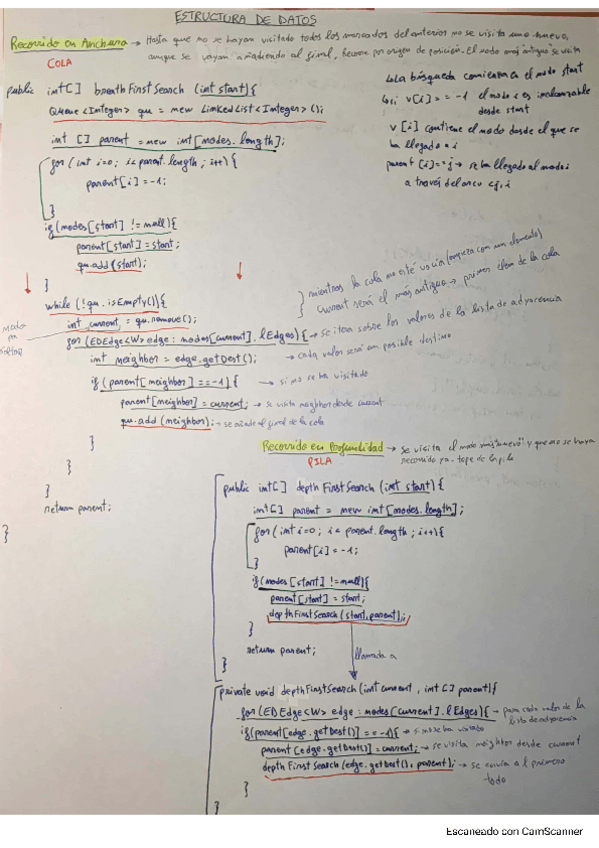 ESTRUCTURA DE DATOS
Recorrido en Anchura → Hasta que no se hayan visitado todos los marcados del anterior no se visita uno nuevo,
aunque se vayan añadiendo al final, recorre por origen de posición. El nodo más "antiguo" se visita
COLA
public int[] breathFirstSearch (int start){
Queue<Integer> qu = new LinkedList<Integer>();
int [] parent = new int[nodes.length];
for (int i=0; i<parent.length; i++){
parent[i] = -1;
}
if(nodes[start] != null){
parent[start] = start;
qu.add(start);
}
while (!qu.isEmpty()){
int current = qu.remove();
for (EDEdge<W> edge: nodes[current].lEdges){ → se itera sobre los valores de la lista de adyacencia
int neighbor = edge.getDest(); → cada valor será un posible destino
if (parent[neighbor] == -1){ → si no se ha visitado
parent[neighbor] = current; → se visita neighbor desde current
qu.add(neighbor); → se añade al final de la cola
}
}
}
return parent;
}
La búsqueda comienza en el nodo start
si v[i] = -1 el nodo i es inalcanzable
desde start
v[i] contiene el nodo desde el que se
ha llegado a i
parent[i] = j → se ha llegado al nodo i
a través del arco <j,i
mientras la cola no esté vacía (empieza con un elemento)
current será el más antiguo → primer elem de la cola
nodo
Recorrido en Profundidad → se visita el nodo más "nuevo" y que no se haya
recorrido ya - tope de la pila
PILA
public int[] depthFirstSearch (int start){
int[] parent = new int[nodes.length];
for (int i=0; i< parent.length; i++){
parent[i] = -1;
}
if(nodes[start] != null){
parent[start] = start;
depthFirstSearch(start, parent);
}
return parent;
}
llamada a
private void depthFirstSearch(int current, int[] parent){
for(EDEdge<W> edge: nodes[current].lEdges){ → para cada valor de la
lista de adyacencia
if(parent[edge.getDest()] == -1){ → si no se ha visitado
parent[edge.getDest()] = current; → se visita neighbor desde current
depthFirstSearch(edge.getDest(), parent); → se envía al primero
todo
}
}
Escaneado con CamScanner